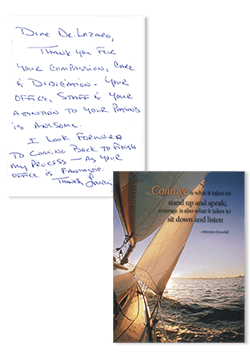 Dear Dr. Lazaro,
Thank you for
your compassion, care
& dedication. Your
office, staff & your
attention to your patients
is awesome.
I look forward
to coming back to finish
my process — as your
office is fantastic.
Thanks,
Courage is what it takes to
stand up and speak;
courage is also what it takes to
sit down and listen
—Winston Churchill